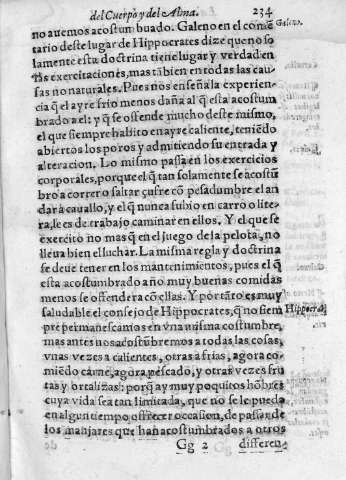 del Cuerpo y del Alma. 234
no auemos acostumbuado. Galeno en el comē
Galeno.
tario deste lugar de Hippocrates dize que no so
lamente esta doctrina tiene lugar y verdad en
las exercitaciones, mas tābien en todas las cau
sas no naturales. Pues nos enseña la experien-
cia q̄ el ayre frio menos daña al q̄ esta acostum
brado a el: y q̄ se offende mucho deste mismo,
el que siempre habito en ayre caliente, teniēdo
abiertos los poros y admitiendo su entrada y
alteracion. Lo mismo passa en los exercicios
corporales, porque el q̄ tan solamente se acostū
bro a correr o saltar çufre cō pesadumbre el an
dar a cauallo, y el q̄ nunca subio en carro o lite
ra, le es de trabajo caminar en ellos. Y el que se
exercito no mas q̄ en el juego de la pelota, no
lleua bien el luchar. La misma regla y doctrina
se deue tener en los mantenimientos, pues el q̄
esta acostumbrado año muy buenas comidas
menos se offendera cō ellas. Y por tāto es muy
saludable el consejo de Hippocrates, q̄ no siem
Hippocra.
pre permanescamos en vna misma costumbre,
mas antes nos acostūbremos a todas las cosas,
vnas vezes a calientes, otras a frias, agora co-
miēdo carne, agora pescado, y otras vezes fru
tas y ortalizas: porq̄ ay muy poquitos hōbres
cuya vida sea tan limitada, que no se le pueda
en algun tiempo offrecer occasion, de passar de
los manjares que han acostumbrados a otros
Gg 2 differen-